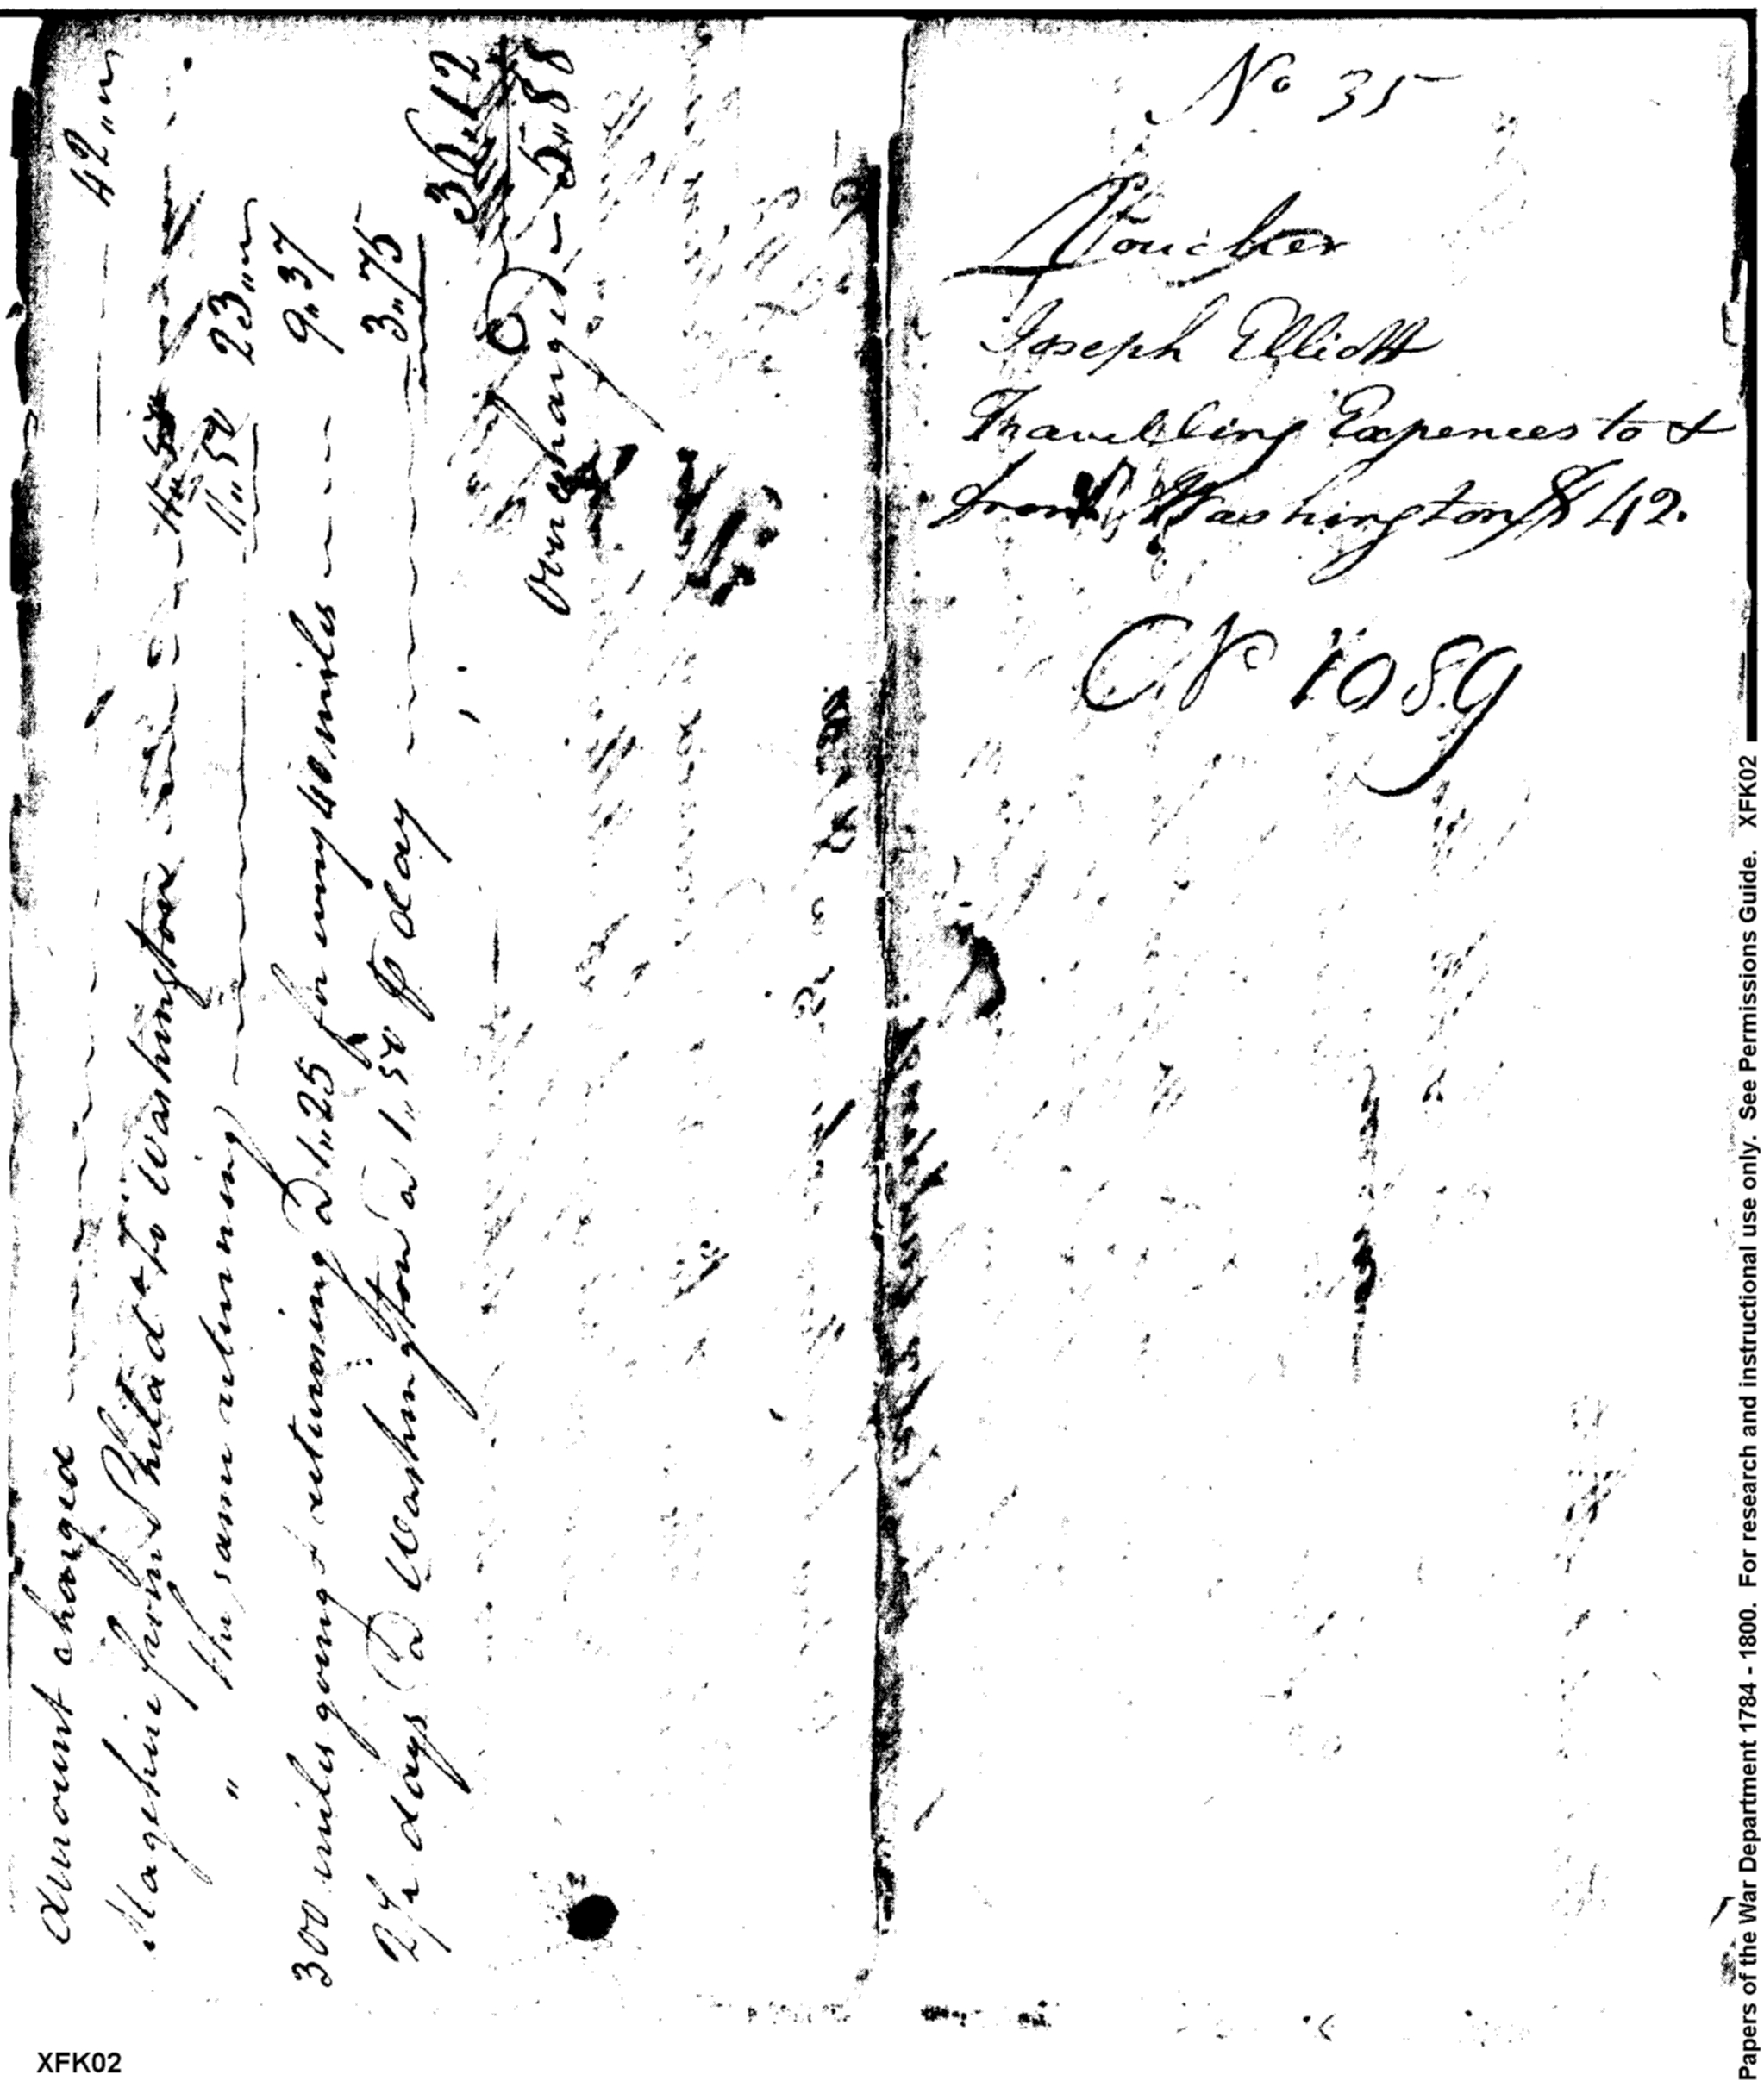 Amount charged 42,,00
Stage hire from Philad.ᵃ to Washington 11,,50
" the same returning 11,,50 23,,00
300 miles going & returning @ 1,,25 for every 40 miles 9,,37
2½ days @ Washington @ 1,,50 ⅌ day 3,,75
36,,12
Overcharged 5,,88
No 35
Voucher
Joseph Elliott
Travelling Expences to &
from Washington $ 42.
No 1089
Papers of the War Department 1784 - 1800. For research and instructional use only. See Permissions Guide. XFK02
XFK02